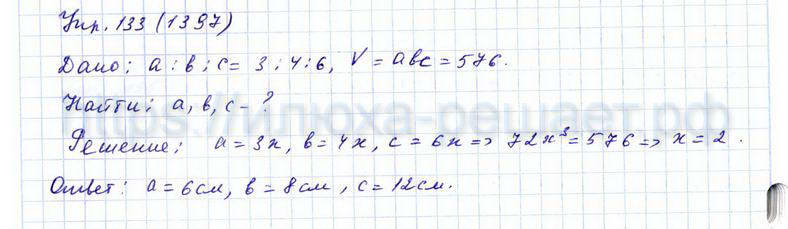 Упр. 133 (1397)
Дано: a : в : c = 3 : 4 : 6, V = aвc = 576.
Найти: a, в, c - ?
https://илюха-решает.рф
Решение: a = 3x, в = 4x, c = 6x => 72x³ = 576 => x = 2.
Ответ: a = 6 см, в = 8 см, c = 12 см.